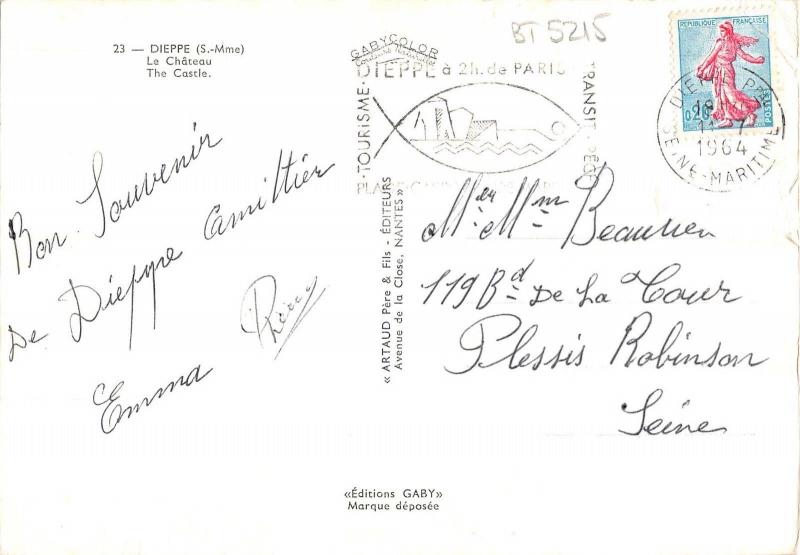 23 — DIEPPE (S.-Mme)
Le Château
The Castle.
Bon Souvenir
De Dieppe Amitier
Emma
GABYCOLOR
BT 5215
DIEPPE à 2h. de PARIS
TOURISME
TRANSIT PÊCHE
REPUBLIQUE FRANÇAISE
0,20
POSTES
DIEPPE PPAL
11-7
1964
SEINE-MARITIME
« ARTAUD Père & Fils - ÉDITEURS
Avenue de la Close, NANTES »
Mer Mme Beaurien
119 Bd De La Tour
Plessis Robinson
Seine
«Éditions GABY»
Marque déposée